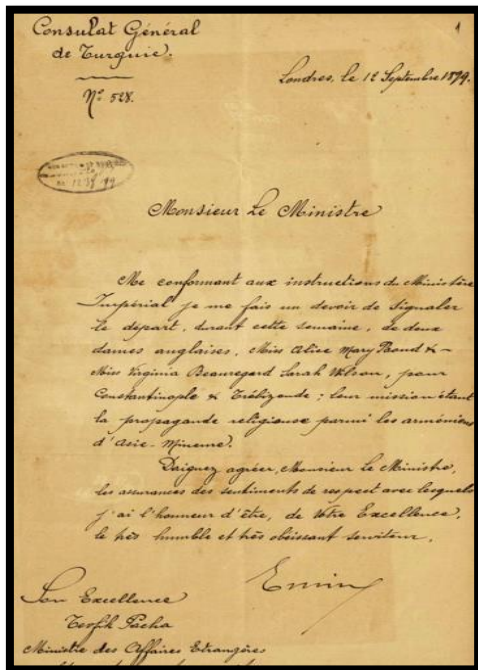 Consulat Général
de Turquie.
Nº 528.
1
Londres, le 12 Septembre 1899.
Monsieur Le Ministre
Me conformant aux instructions du Ministère
Impérial je me fais un devoir de Signaler
le départ, durant cette semaine, de deux
dames anglaises, Miss Alice Mary &
Miss Virginia Beauregard Sarah Wilson, pour
Constantinople & Trébizonde ; leur mission étant
la propagande religieuse parmi les arméniens
d'Asie-Mineure.
Daignez agréer, Monsieur le Ministre,
les assurances des sentiments de respect avec lesquels
j'ai l'honneur d'être, de Votre Excellence,
le très humble et très obéissant serviteur.
Emin
Son Excellence
Tevfik Pacha
Ministre des Affaires Etrangères